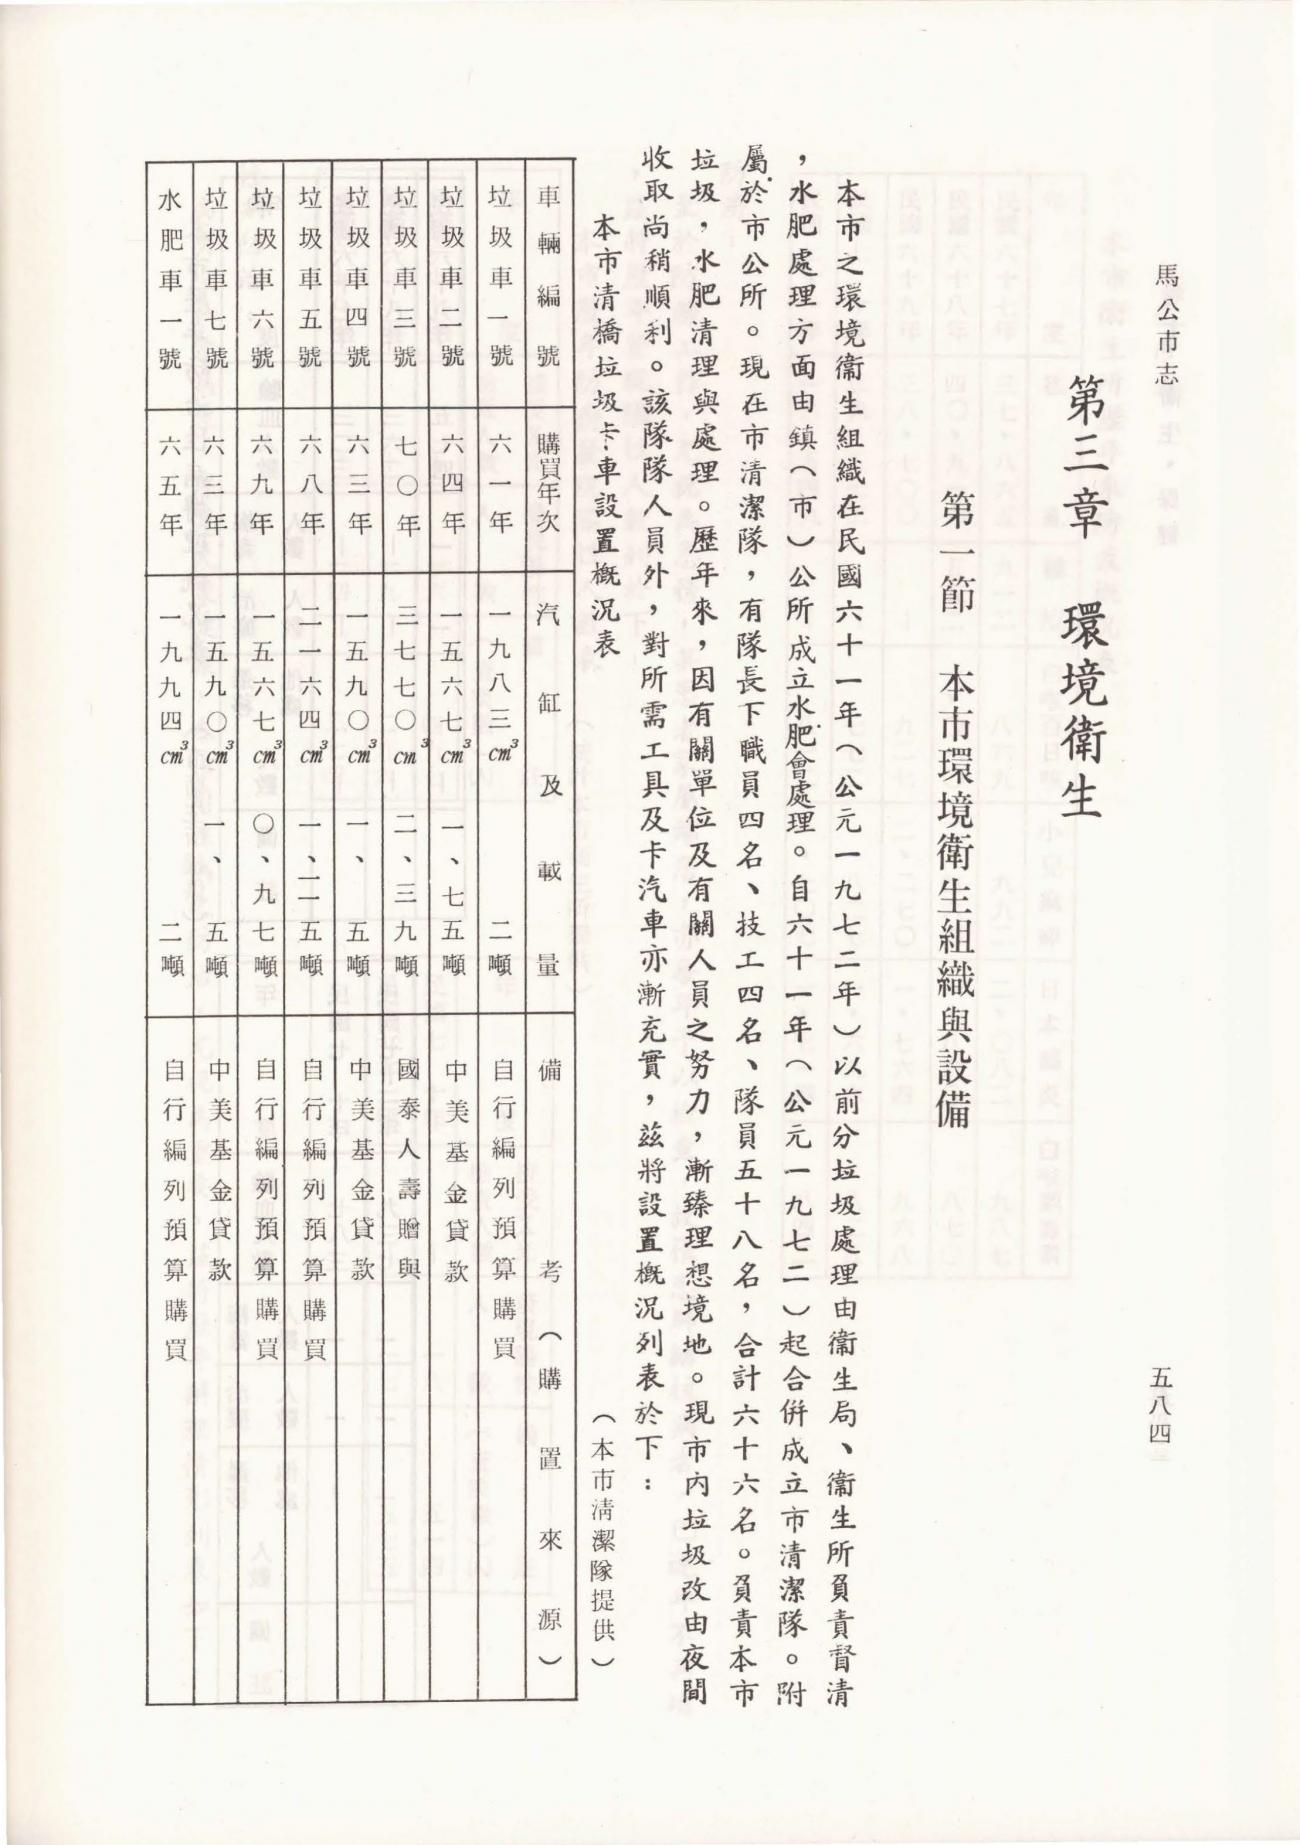 馬公市志
五八四
第三章　環境衛生
第一節　本市環境衛生組織與設備
本市之環境衞生組織在民國六十一年（公元一九七二年）以前分垃圾處理由衞生局、衞生所負責督清
，水肥處理方面由鎮（市）公所成立水肥會處理。自六十一年（公元一九七二）起合併成立市清潔隊。附
屬於市公所。現在市清潔隊，有隊長下職員四名、技工四名、隊員五十八名，合計六十六名。負責本市
垃圾，水肥清理與處理。歷年來，因有關單位及有關人員之努力，漸臻理想境地。現市內垃圾改由夜間
收取尚稍順利。該隊隊人員外，對所需工具及卡汽車亦漸充實，茲將設置概況列表於下：
本市清橋垃圾卡車設置概況表　（本市清潔隊提供）
車輛編號　購買年次　汽缸及載量　備考（購置來源）
垃圾車一號　六一年　一九八三cm³　二噸　自行編列預算購買
垃圾車二號　六四年　一五六七cm³　一、七五噸　中美基金貸款
垃圾車三號　七〇年　三七七〇cm³　二、三九噸　國泰人壽贈與
垃圾車四號　六三年　一五九〇cm³　一、五噸　中美基金貸款
垃圾車五號　六八年　二一六四cm³　一、二一五噸　自行編列預算購買
垃圾車六號　六九年　一五六七cm³　〇、九七噸　自行編列預算購買
垃圾車七號　六三年　一五九〇cm³　一、五噸　中美基金貸款
水肥車一號　六五年　一九九四cm³　二噸　自行編列預算購買